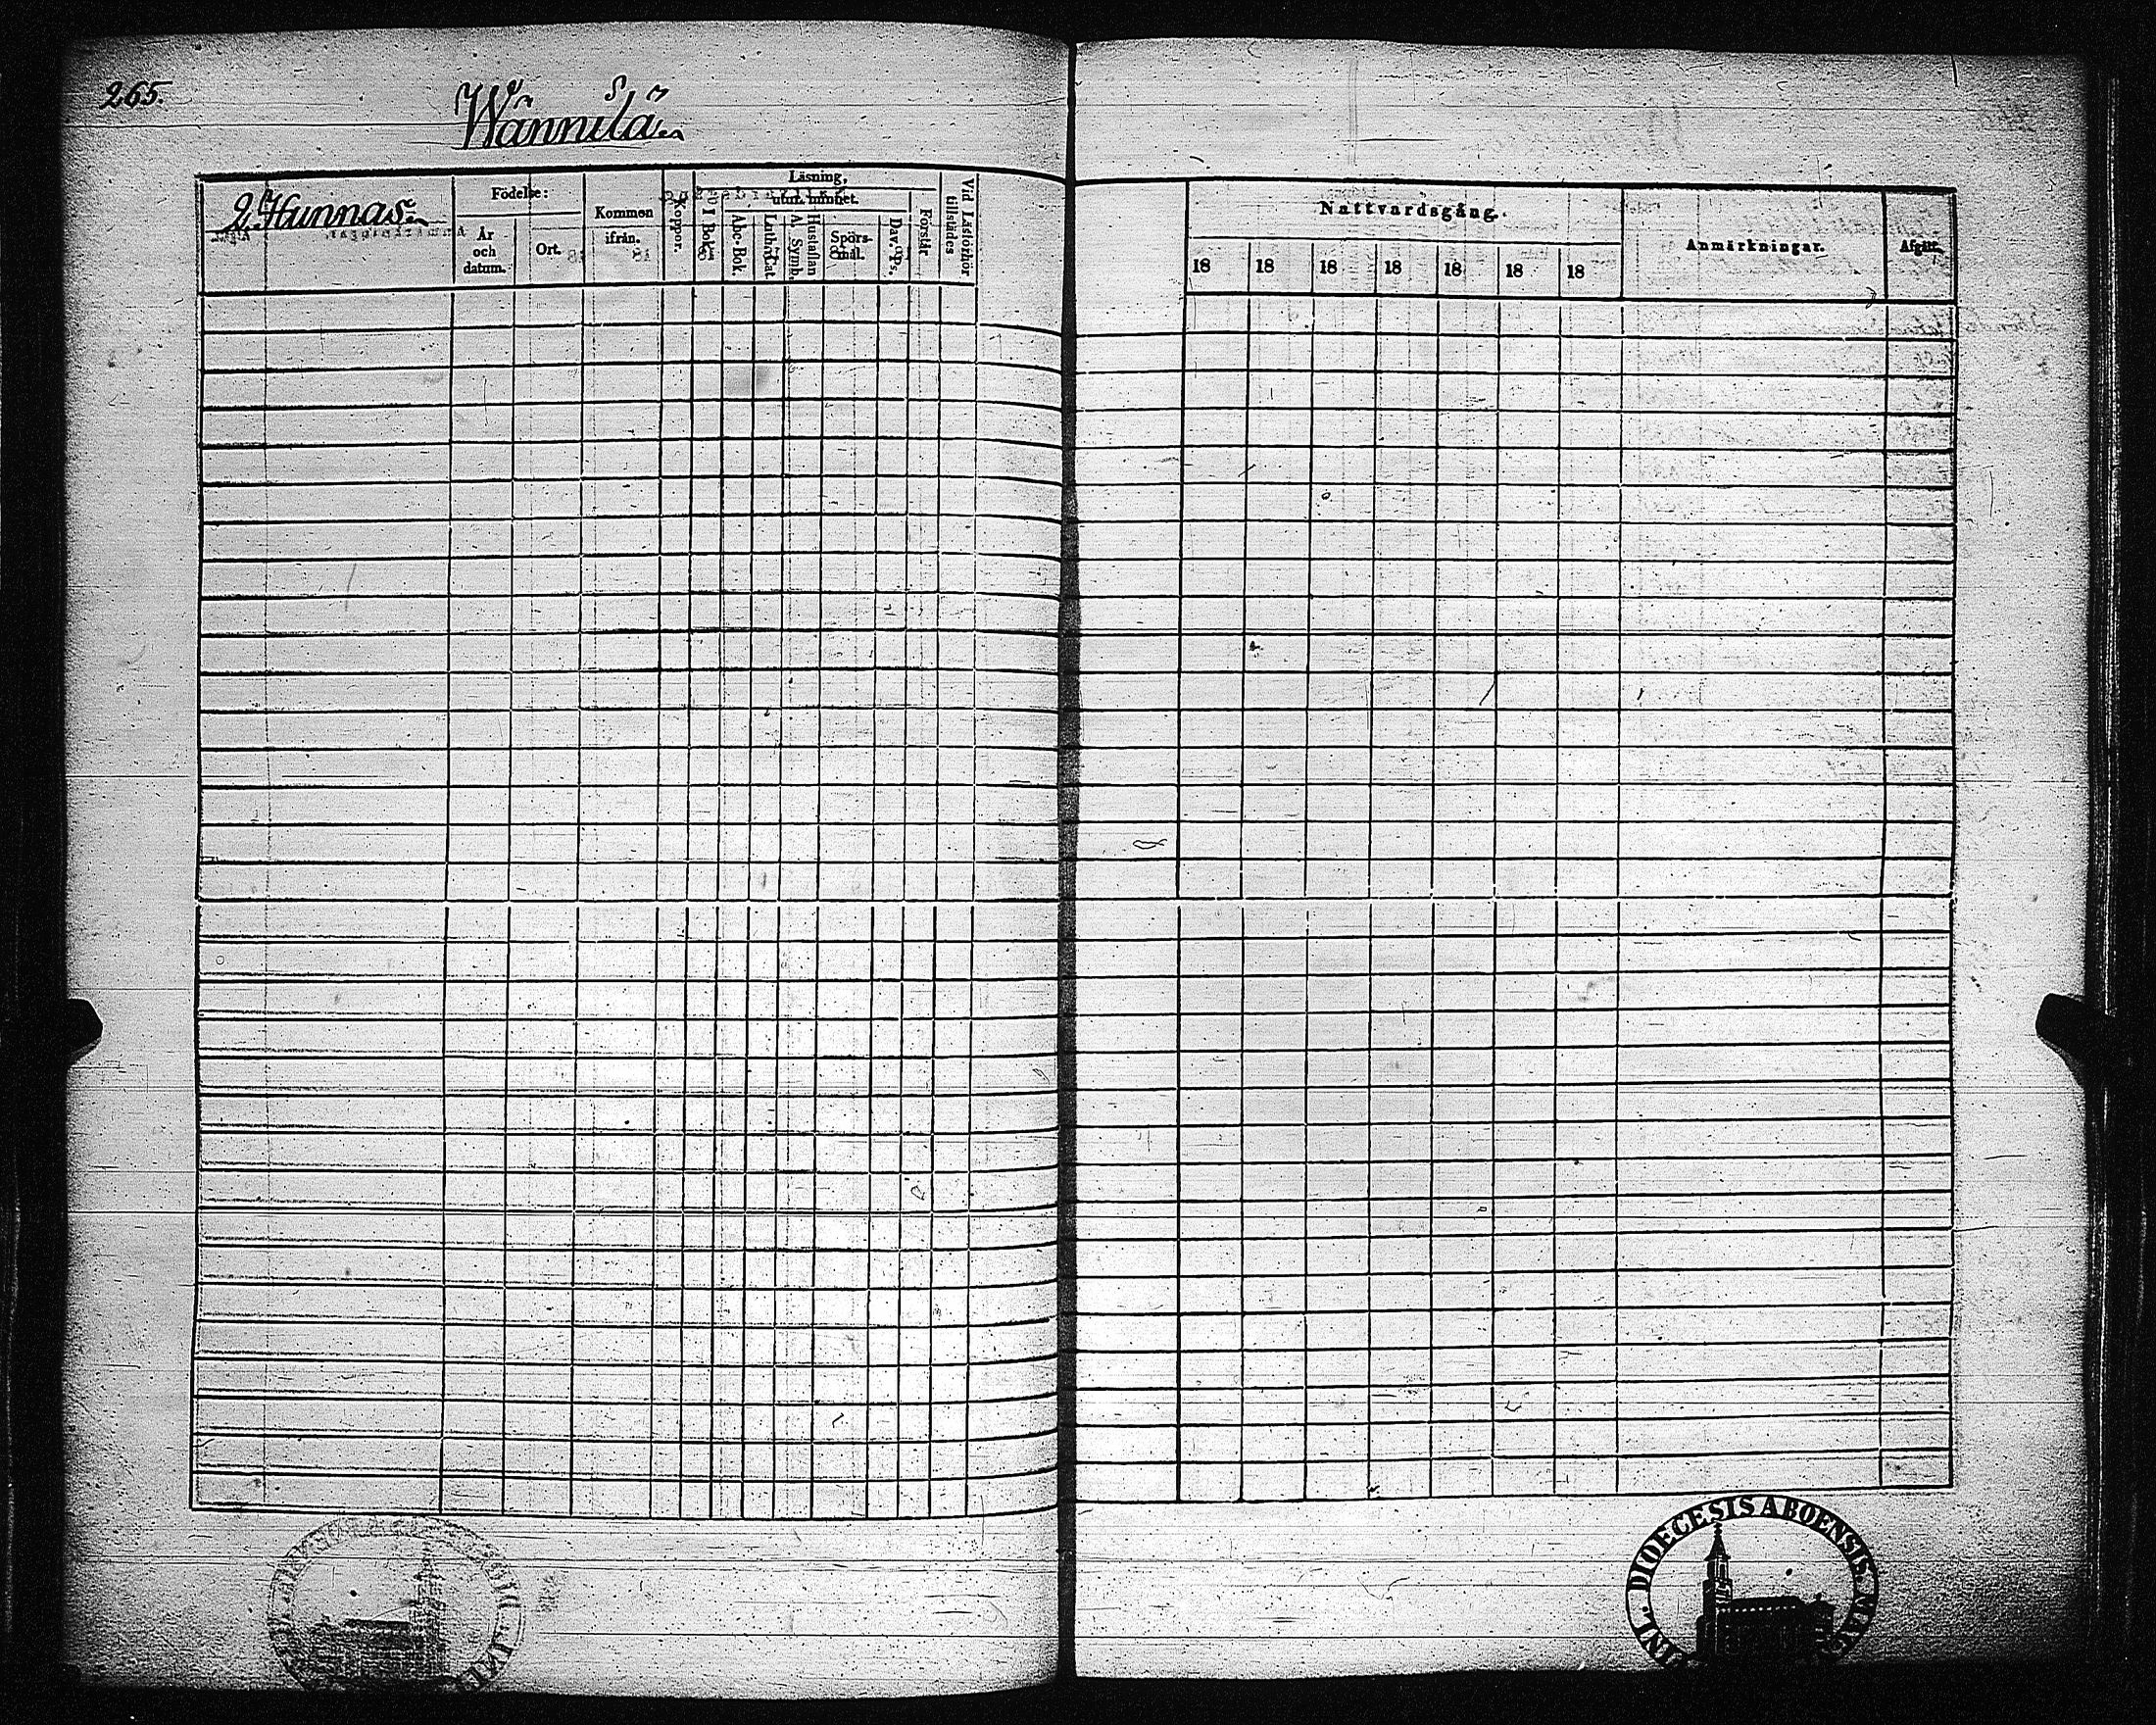 265.
Wännilä
2, Hunnas
Födelse:
År och datum.
Ort.
Kommen ifrån.
Koppor.
Läsning,
I Bok.
utur minnet.
Abc-Bok.
Luth. Cat.
Hustaflan A. Symb.
Spörsmål.
Dav. Ps.
Förstår
Vid Läsförhör tillstädes
Nattvardsgång.
18 18 18 18 18 18 18
Anmärkningar.
Afgått.
FINL. DIOECESIS ABOENSIS.